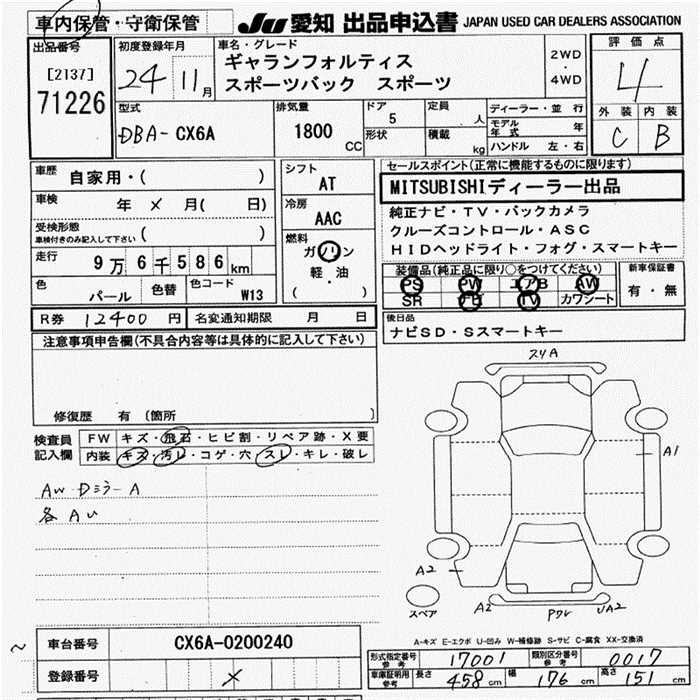 車内保管・守衛保管
JU 愛知 出品申込書 JAPAN USED CAR DEALERS ASSOCIATION
出品番号
[2137]
71226
初度登録年月
24 11月
車名・グレード
ギャランフォルティス
スポーツバック スポーツ
2WD
・
4WD
評価点
4
外装 内装
C B
型式
DBA-CX6A
排気量
1800
CC
ドア
5
形状
定員
人
積載
kg
ディーラー・並行
モデル
年式
年
ハンドル 左・右
車歴
自家用・( )
車検
年 × 月( 日)
受検形態
車検付きのみ記入して下さい ( )
走行
9万6千586km
色
パール
色替
色コード
W13
シフト
AT
冷房
AAC
燃料
ガソリン
軽・油
( )
セールスポイント(正常に機能するものに限ります)
MITSUBISHIディーラー出品
純正ナビ・TV・バックカメラ
クルーズコントロール・ASC
HIDヘッドライト・フォグ・スマートキー
装備品(純正品に限り○をつけてください)
PS PW エアB AW
SR ナビ TV カワシート
新車保証書
有・無
R券 12400 円 名変通知期限 月 日
後日品
ナビSD・Sスマートキー
注意事項申告欄(不具合内容等は具体的に記入して下さい)
修復歴 有 〔箇所 〕
検査員
記入欄
FW キズ・飛石・ヒビ割・リペア跡・X要
内装 キズ・汚レ・コゲ・穴・スレ・キレ・破レ
AW・DミラーA
各AU
スリA
A1
A2
スペア
A2
PクレUA2
A-キズ E-エクボ U-凹み W-補修跡 S-サビ C-腐食 XX-交換済
車台番号 CX6A-0200240
登録番号 ×
形式指定番号
参考
17001
類別区分番号
参考
0017
車庫証明用
参考
長さ 458cm 幅 176cm 高さ 151cm